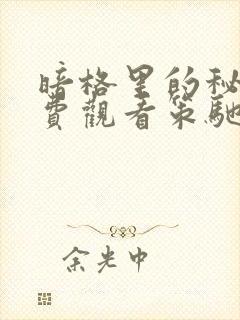 暗格里的秘
費觀看策馳
余光中